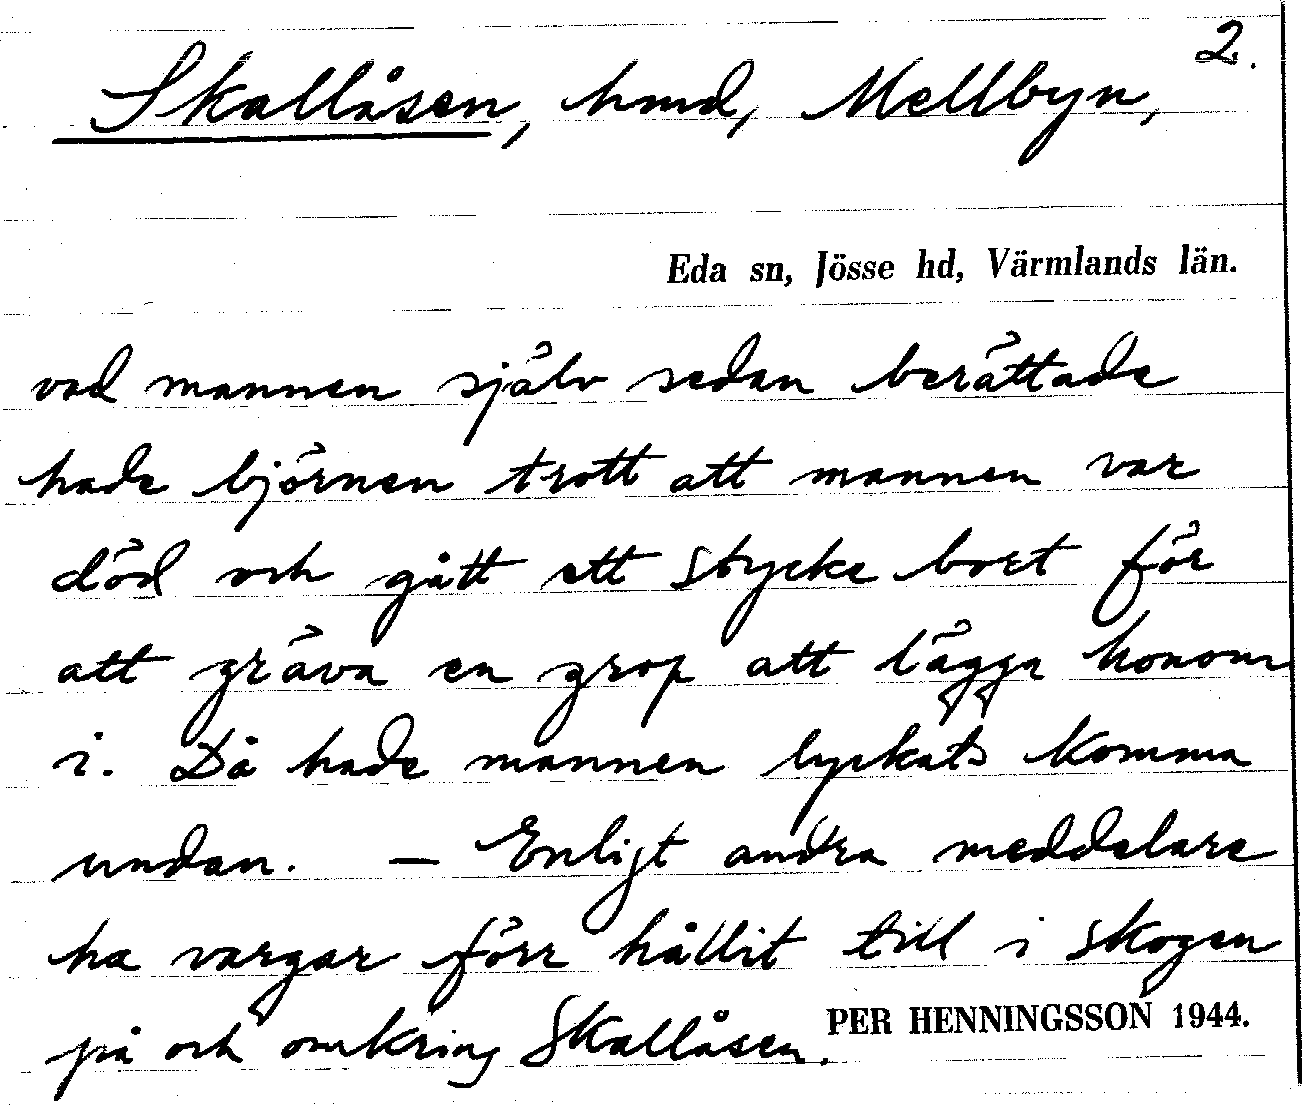 2.
Skallåsen, hmd, Mellbyn,
Eda sn, Jösse hd, Värmlands län.
vad mannen själv sedan berättade
hade björnen trott att mannen var
död och gått ett stycke bort för
att gräva en grop att lägga honom
i. Då hade mannen lyckats komma
undan. — Enligt andra meddelare
ha vargar förr hållit till i skogen
på och omkring Skallåsen.
PER HENNINGSSON 1944.